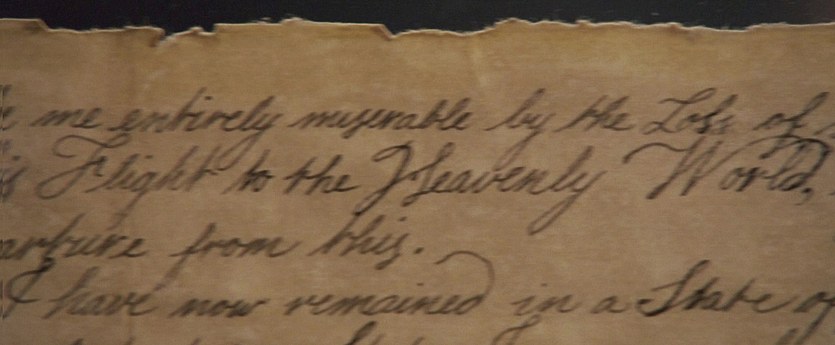 me entirely miserable by the Loss of
Flight to the Heavenly World,
arture from this.
I have now remained in a State of